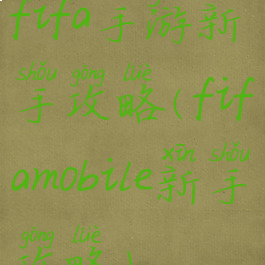 fifa手游新
shǒu gōng lüè
手攻略(fif
xīn shǒu
amobile新手
gōng lüè
攻略)